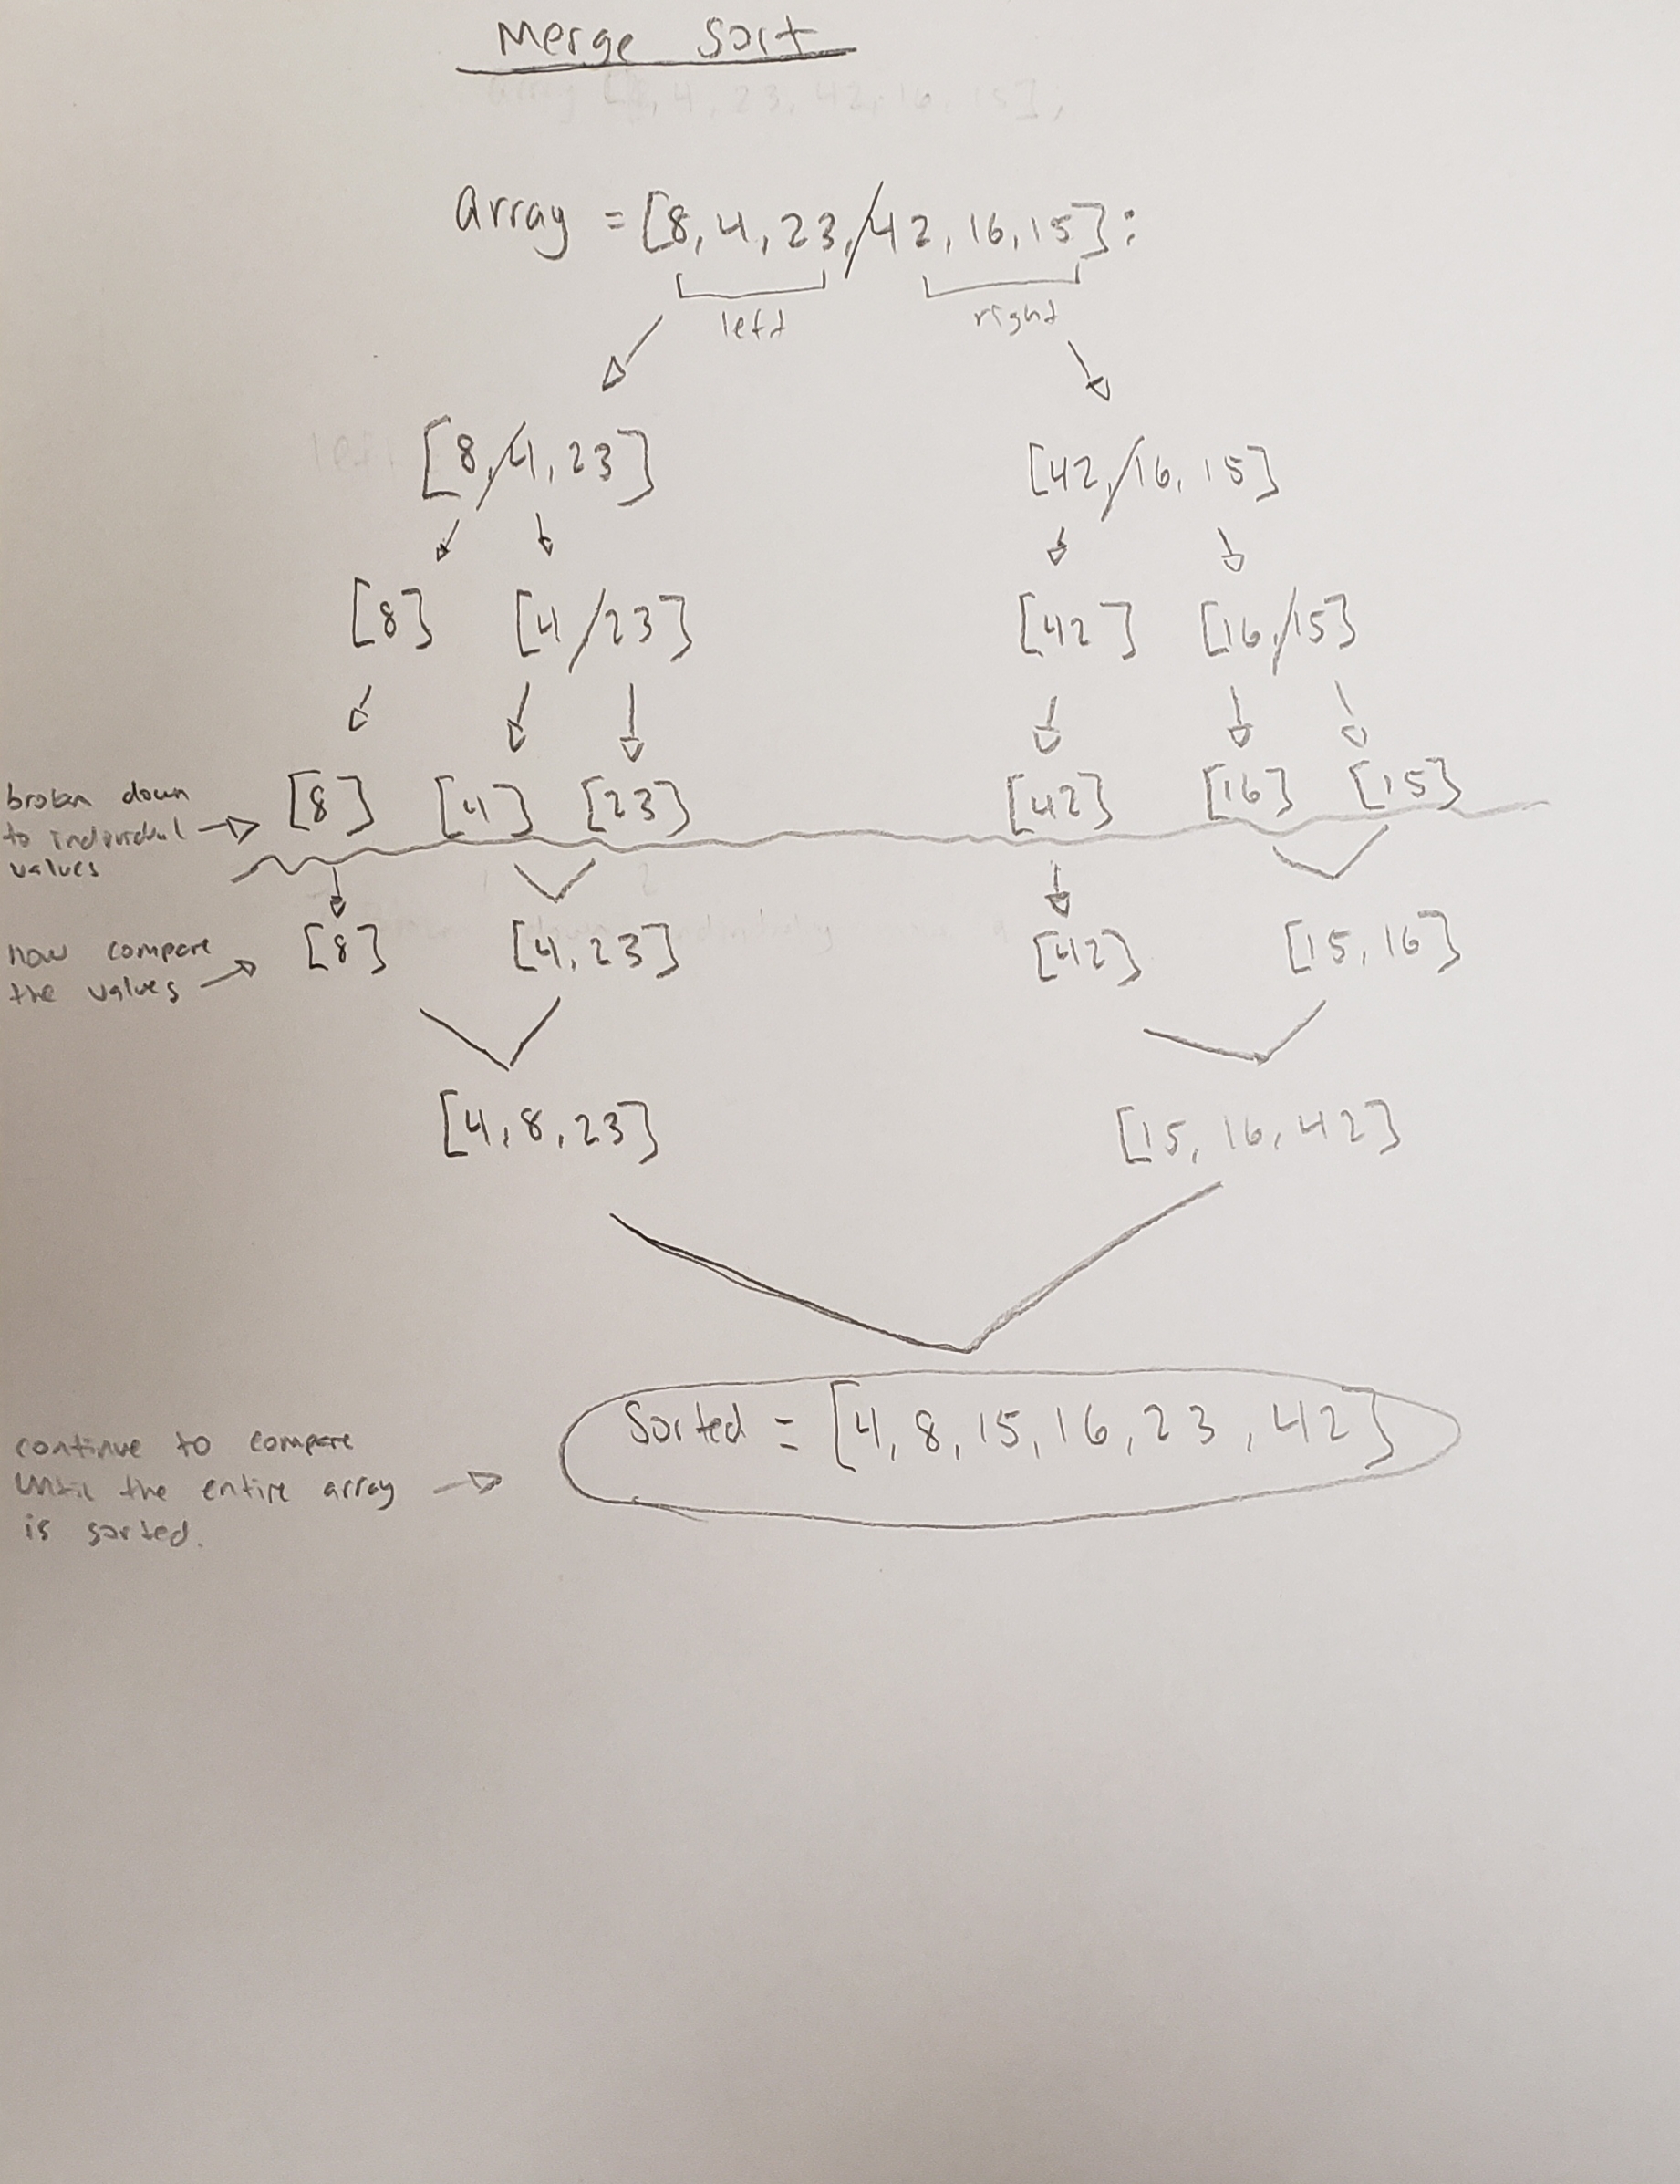 Merge Sort
array [8, 4, 23, 42, 16, 15];
array = [8, 4, 23, / 42, 16, 15]:
left right
left
[8, / 4, 23] [42, / 16, 15]
[8] [4 / 23] [42] [16, / 15]
broken down
to individual
values
[8] [4] [23] [42] [16] [15]
now compare
the values
[8] [4, 23] [42] [15, 16]
[4, 8, 23] [15, 16, 42]
continue to compare
until the entire array
is sorted.
Sorted = [4, 8, 15, 16, 23, 42]